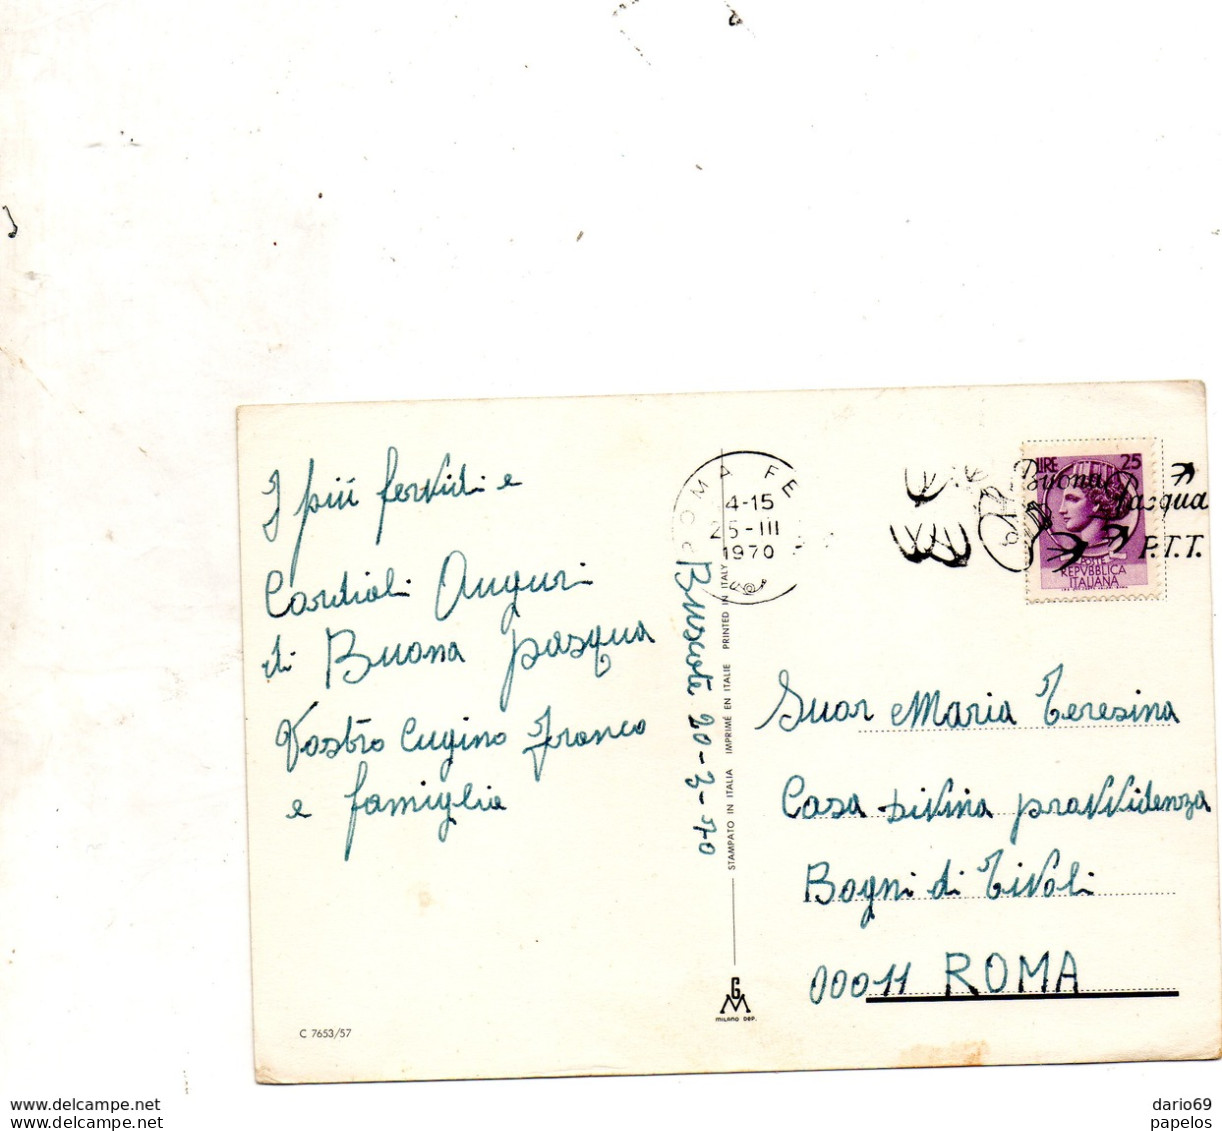 I più fervidi e
Cordiali Auguri
di Buona pasqua
Vostro Cugino Franco
e famiglia
C 7653/57
ROMA FE
4-15
25-III
1970
Bruscote 20-3-70
STAMPATO IN ITALIA IMPRIMÉ EN ITALIE PRINTED IN ITALY
GM
MILANO DEP.
LIRE 25
POSTE
REPVBBLICA
ITALIANA
Buona Pasqua
P.T.T.
Suor Maria Teresina
Casa Divina provvidenza
Bagni di Tivoli
00011 ROMA
www.delcampe.net
www.delcampe.net
dario69
papelos